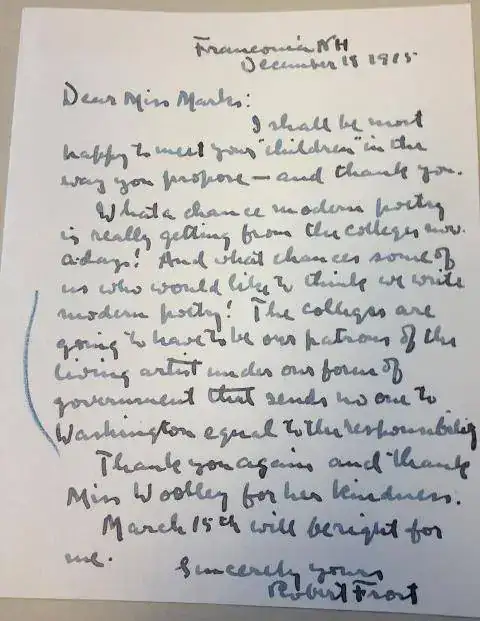 Franconia NH
December 18 1915
Dear Miss Marks:
I shall be most
happy to meet your "children" in the
way you propose — and thank you.
What a chance modern poetry
is really getting from the colleges now.
a-days! And what chances some of
us who would like to think we write
modern poetry! The colleges are
going to have to be our patrons of the
living artist under our form of
government that sends no one to
Washington equal to the responsibility
Thank you again and thank
Miss Woolley for her kindness.
March 15th will be right for
me.
Sincerely yours
Robert Frost